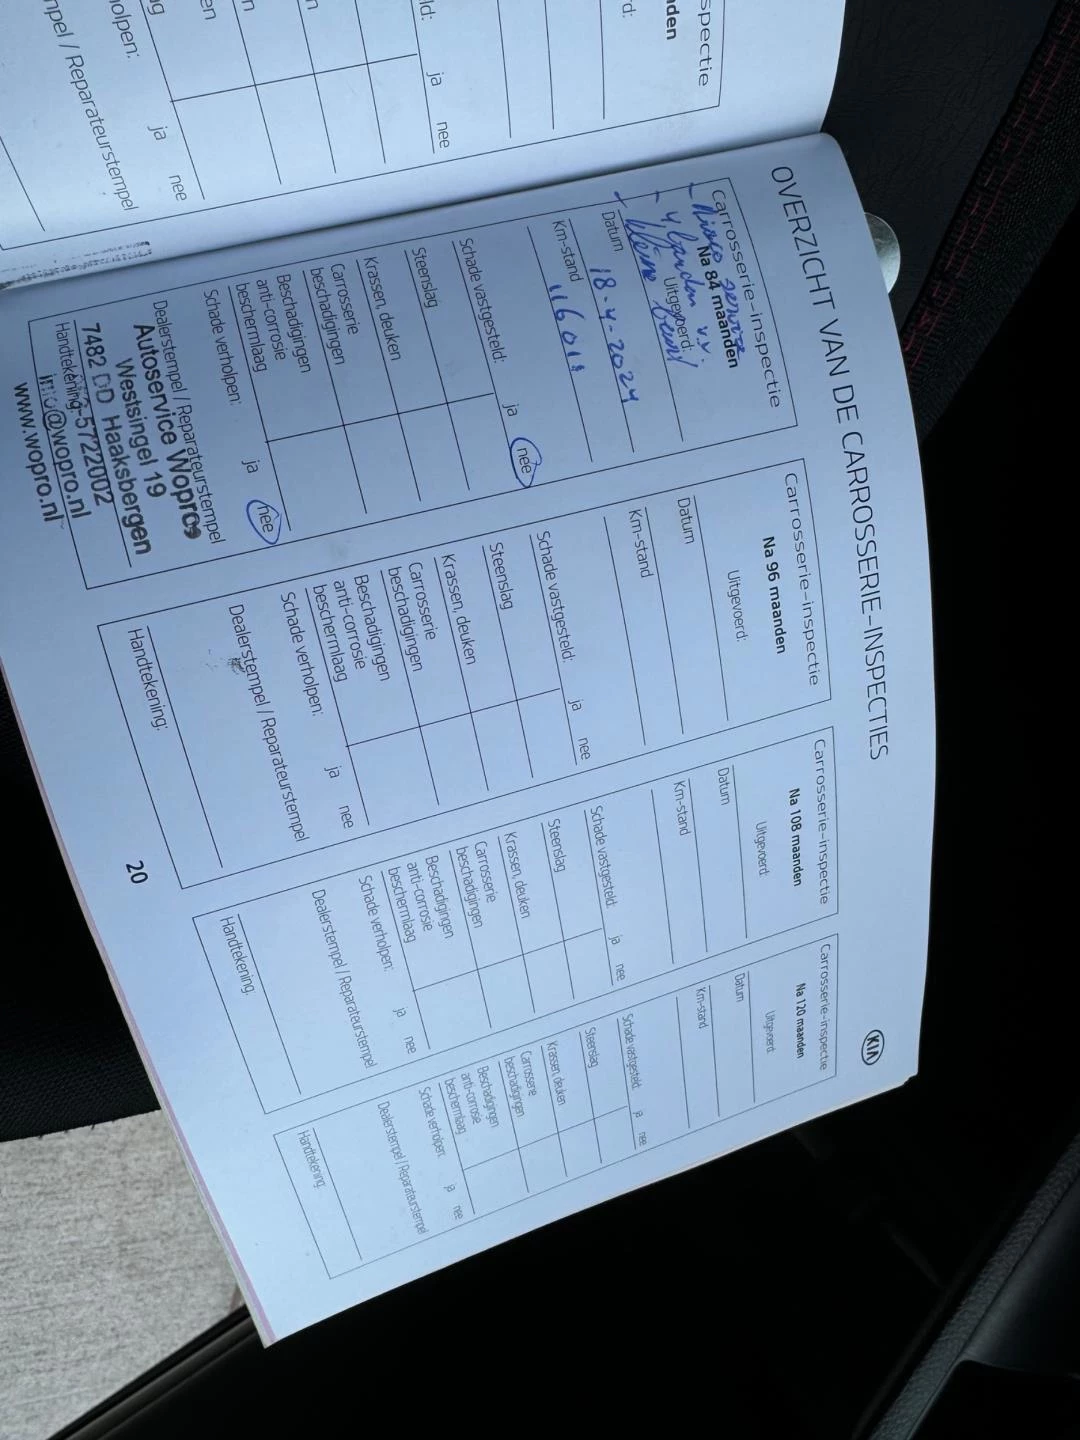 spectie
nden
rd:
ld:
ja nee
n
n
en
ng
holpen:
ja nee
mpel / Reparateurstempel
OVERZICHT VAN DE CARROSSERIE-INSPECTIES
KIA
Carrosserie-inspectie
Na 84 maanden
Uitgevoerd:
4 banden v.v.
kleine beurt
Datum 18-4-2024
Km-stand
Schade vastgesteld: ja nee
Steenslag
Krassen, deuken
Carrosserie
beschadigingen
Beschadigingen
anti-corrosie
beschermlaag
Schade verholpen: ja nee
Dealerstempel / Reparateurstempel
Autoservice Wopros
Westsingel 19
7482 DD Haaksbergen
5722002
Handtekening:
info@wopro.nl
www.wopro.nl
Carrosserie-inspectie
Na 96 maanden
Uitgevoerd:
Datum
Km-stand
Schade vastgesteld: ja nee
Steenslag
Krassen, deuken
Carrosserie
beschadigingen
Beschadigingen
anti-corrosie
beschermlaag
Schade verholpen: ja nee
Dealerstempel / Reparateurstempel
Handtekening:
Carrosserie-inspectie
Na 108 maanden
Uitgevoerd:
Datum
Km-stand
Schade vastgesteld: ja nee
Steenslag
Krassen, deuken
Carrosserie
beschadigingen
Beschadigingen
anti-corrosie
beschermlaag
Schade verholpen: ja nee
Dealerstempel / Reparateurstempel
Handtekening:
Carrosserie-inspectie
Na 120 maanden
Uitgevoerd:
Datum
Km-stand
Schade vastgesteld: ja nee
Steenslag
Krassen, deuken
Carrosserie
beschadigingen
Beschadigingen
anti-corrosie
beschermlaag
Schade verholpen: ja nee
Dealerstempel / Reparateurstempel
Handtekening:
20